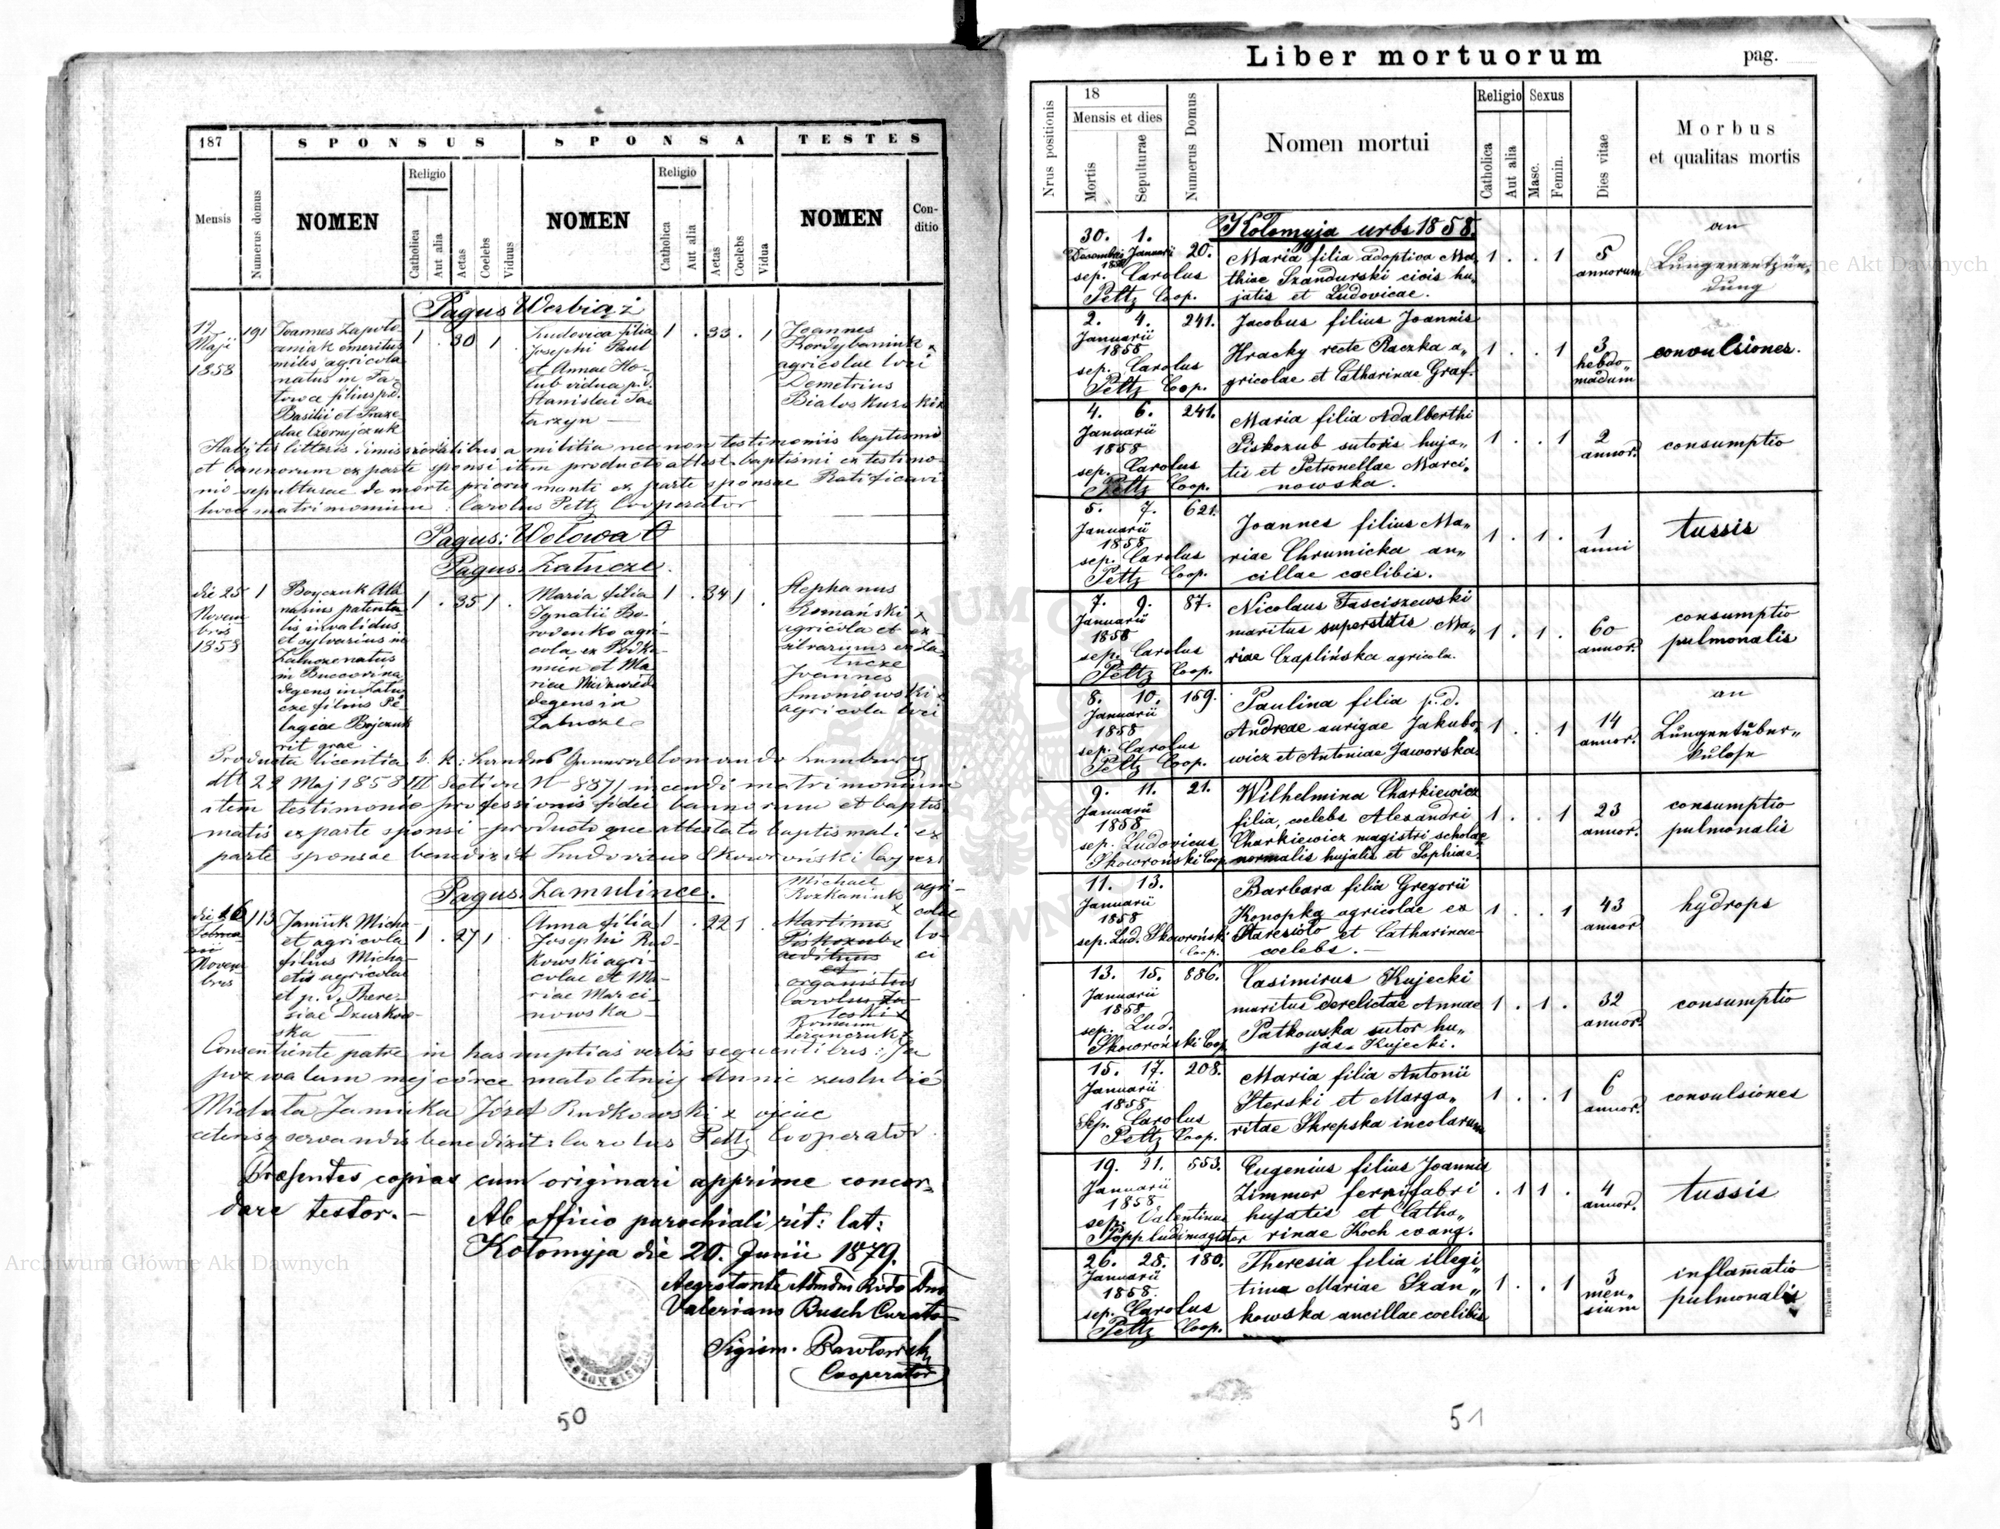 187
SPONSUS
SPONSA
TESTES
Mensis
Numerus domus
NOMEN
Religio
Catholica
Aut alia
Aetas
Coelebs
Viduus
NOMEN
Religio
Catholica
Aut alia
Aetas
Coelebs
Vidua
NOMEN
Con-
ditio
Pagus Werbiąż
12
Maji
1858
191
Joannes Zapoto
czniak emeritus
miles agricola
natus in Ta-
towa filius p.d.
Basilii et Praxe
dae Czornejczuk
1 . 30 1
Ludovica filia
Josephi Paul
et Annae Ho-
lub vidua p.d.
Stanislai Ta
tarzyn
1 . 33 . 1
Joannes
Kordybaniuk x
agricolae loci
Demetrius
Białoskurski x
Habitis litteris dimissorialibus a militia nec non testimoniis baptismi
et bannorum ex parte sponsi item producto attest. baptismi ex testimo-
nio sepulturae de morte prioris mariti ex parte sponsae Ratificavi
hocce matrimonium : Carolus Peltz Cooperator
Pagus: Wołowa 0
Pagus: Załucze.
die 25
Novem
bris
1858
1
Boyczuk Ata
nasius patenta
lis invalidus
et sylvarius in
Załucze natus
in Bucovina
degens in Zału
cze filius Pe
lagiae Bojczuk
rit. grae
1 . 35 1 .
Maria filia
Ignatii Bo-
rodenko agri-
cola ex Podka-
mień et Ma
riae
degens in
Załucze
1 . 34 1 .
Stephanus
Romański x
agricola et ex-
Joannes
Smoniowski x
agricola loci
Producta licentia k. k. Landes General Comando Lemberg
dtto 22 Maj 1858 III Section N 8371 ineundi matrimonium
item testimonio professionis fidei bannorum et baptis
matis ex parte sponsi productoque attestato baptismali ex
parte sponsae benedixit Ludovicus Skowroński Cooper.
Pagus: Zamulince.
die 16
Novem
bris
113
Jamiuk Micha
el agricola
filius Micha-
elis agricolae
et p. d. There-
siae Dzurkow-
ska
1 . 27 1
Anna filia
Josephi Rud-
kowski agri-
colae et Ma-
riae Marci
nowska
1 . 22 1 .
Michael
Rozkaniuk
x
Martinus
Piskozub
aedituus
et
organistus
agri-
colae
lo-
ci
Consentiente patre in has nuptias verbis sequentibus: Ja
pozwalam mej córce małoletniej Annie zaślubić
Michała Jamiuka Józef Rudkowski x ojciec
ceterisq servandis benedixit: Carolus Peltz Cooperator.
Praesentes copias cum originari apprime concor-
dare testor. —
Ab officio parochiali rit: lat:
Kołomyja die 20. Junii 1879.
Aegrotante Admdm Rvdo Dno
Valeriano Busch Curato
Sigism. Pawłowski
Cooperator
50
Liber mortuorum
pag.
Nrus positionis
18
Mensis et dies
Mortis
Sepulturae
Numerus Domus
Nomen mortui
Religio
Catholica
Aut alia
Sexus
Masc.
Femin.
Dies vitae
Morbus
et qualitas mortis
Kołomyja urbs 1858.
30. 1. 20.
Decembri Januarii
sep. Carolus
Peltz Coop.
Maria filia adoptiva Ma-
thiae Szandurski civis hu-
jatis et Ludovicae.
1 . . 1
5
annorum
an
Lungenentzün-
dung
2. 4. 241.
Januarii
1858
sep. Carolus
Peltz Coop.
Jacobus filius Joannis
Hracky recte Raczka a„
gricolae et Catharinae Graf.
1 . . 1
3
hebdo„
madum
convulsiones.
4. 6. 241.
Januarii
1858
sep. Carolus
Peltz Coop.
Maria filia Adalberthi
Piskozub sutoris huja„
tis et Petronellae Marci„
nowska.
1 . . 1
2
annor.
consumptio
5. 7. 621.
Januarii
1858
sep. Carolus
Peltz Coop.
Joannes filius Ma„
riae Chrumicka an„
cillae coelibis.
1 . 1 .
1
anni
tussis
7. 9. 87.
Januarii
1858
sep. Carolus
Peltz Coop.
Nicolaus Fasciszewski
maritus superstitis Ma„
riae Czaplińska agricola.
1 . 1 .
60
annor.
consumptio
pulmonalis
8. 10. 159.
Januarii
1858
sep. Carolus
Peltz Coop.
Paulina filia p.d.
Andreae aurigae Jakubo„
wicz et Antoniae Jaworska
1 . . 1
14
annor.
an
Lungentuber„
kulose
9. 11. 21.
Januarii
1858
sep. Ludovicus
Skowroński Coop.
Wilhelmina Charkiewicz
filia, coelebs Alexandri
Charkiewicz magistri scholae
normalis hujatis et Sophiae.
1 . . 1
23
annor.
consumptio
pulmonalis
11. 13.
Januarii
1858
sep. Lud. Skowroński
Coop.
Barbara filia Gregorii
Konopka agricolae ex
Staresioło et Catharinae
coelebs. —
1 . . 1
43
annor.
hydrops
13. 15. 886.
Januarii
1858
sep. Lud.
Skowroński Coop.
Casimirus Kujecki
maritus derelictae Annae
Patkowska sutor hu„
jas. Kujecki.
1 . 1 .
32
annor.
consumptio
15. 17. 208.
Januarii
1858
Sep. Carolus
Peltz Coop.
Maria filia Antonii
Sterski et Marga„
ritae Skrepska incolarum
1 . . 1
6
annor.
convulsiones
19. 21. 553.
Januarii
1858.
sep. Valentinus
Popp ludimagister
Eugenius filius Joannis
Zimmer ferrifabri
hujatis et Catha„
rinae Koch evang.
. 1 1 .
4
annor.
tussis
26. 28. 180.
Januarii
1858.
sep. Carolus
Peltz Coop.
Theresia filia illegi„
tima Mariae Szan„
kowska ancillae coelibis
1 . . 1
3
men„
sium
inflamatio
pulmonalis
Drukiem i nakładem drukarni Ludowej we Lwowie.
51
Archiwum Główne Akt Dawnych
Archiwum Główne Akt Dawnych
ARCHIWUM GŁÓWNE AKT DAWNYCH